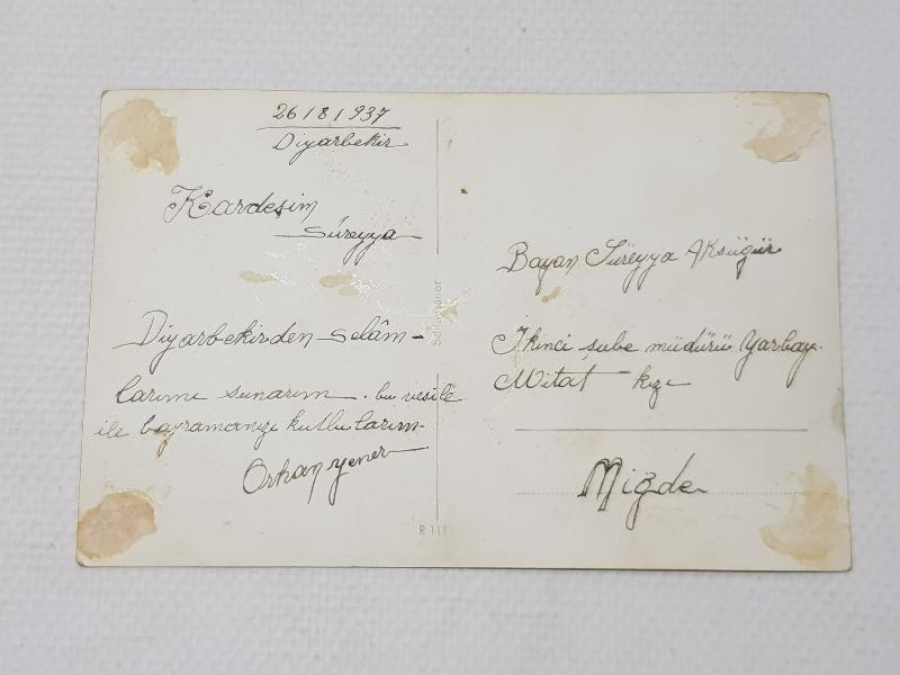 26/8/937
Diyarbekir
Kardeşim
Süreyya
Diyarbekirden selâm-
larımı sunarım. bu vesile
ile bayramınızı kutlularım.
Orhan yener
R 111
Bayan Süreyya Aksügür
İkinci şube müdürü Yarbay
Mitat kızı
Niğde